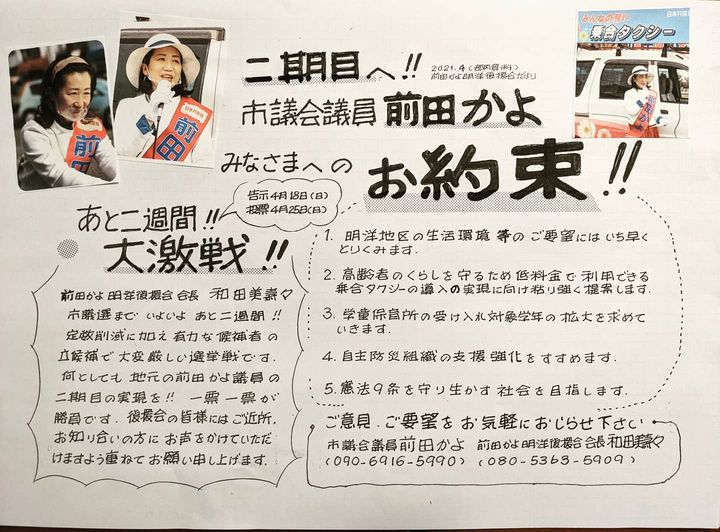 みんなの願い
乗合タクシー
前田
前田
二期目へ!!
2021.4(室内資料)
前田かよ明洋後援会だより
市議会議員 前田かよ
みなさまへの お約束!!
告示4月18日(日)
投票4月25日(日)
あと二週間!!
大激戦!!
前田かよ明洋後援会 会長 和田美寿々
市議選まで いよいよ あと二週間!!
定数削減に加え 有力な候補者の
立候補で大変厳しい選挙戦です.
何としても 地元の前田かよ議員の
二期目の実現を!! 一票一票が
勝負です. 後援会の皆様にはご近所,
お知り合いの方に お声をかけていただ
けますよう重ねて お願い申し上げます.
1. 明洋地区の生活環境 等の ご要望には いち早く
とりくみます.
2. 高齢者のくらしを守るため 低料金で 利用できる
乗合タクシーの導入の実現に向け粘り強く提案します.
3. 学童保育所の受け入れ対象学年の 拡大を求めて
いきます.
4. 自主防災組織の支援 強化をすすめます.
5. 憲法9条を守り生かす 社会を目指します.
ご意見.ご要望を お気軽に おじらせ下さい
市議会議員 前田かよ
(090-6916-5990)
前田かよ明洋後援会会長 和田美寿々
(080-5363-5909)